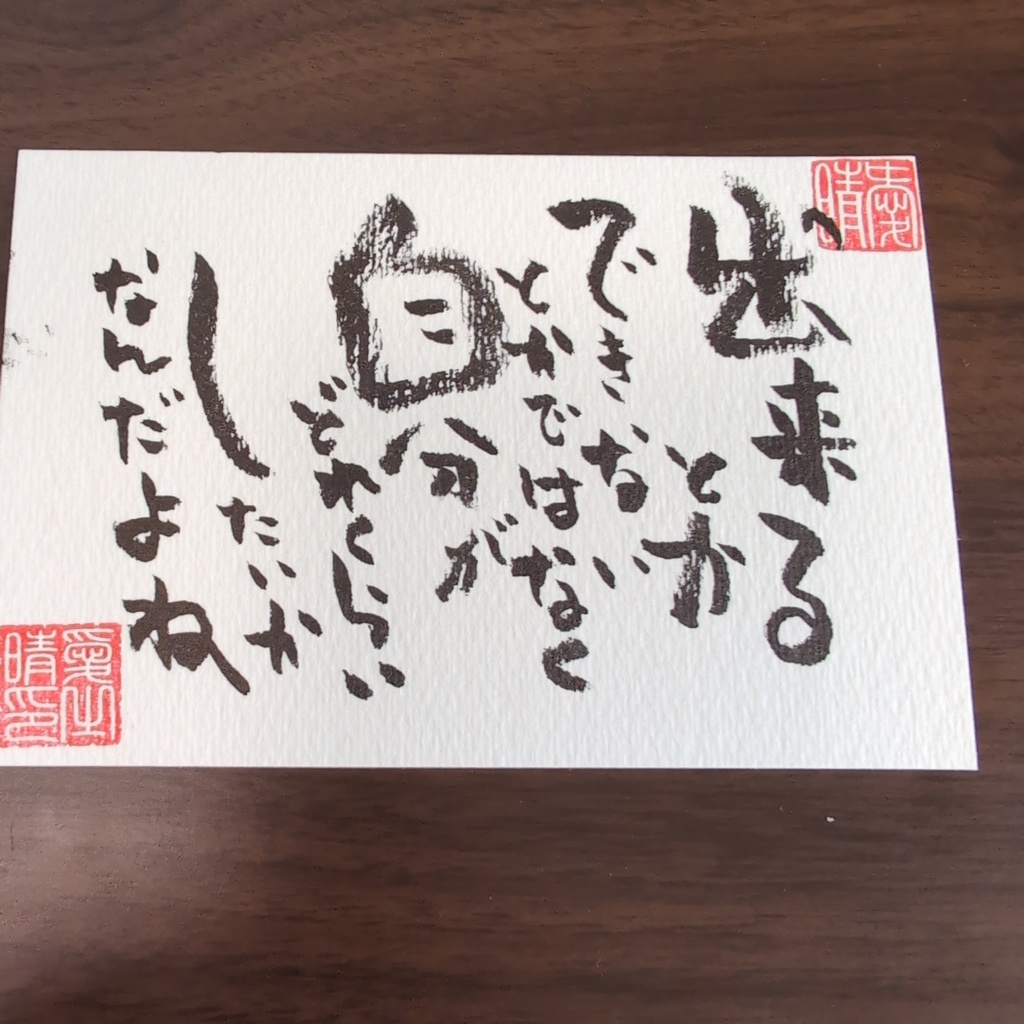 出来る
とか
できない
とかではなく
自分が
どれくらい
したいか
なんだよね